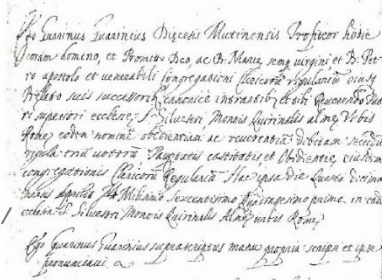 Ego Guarinus Guarinius Diecesis Mutinensis Profiteor hodie
coram domino, et Promitto Deo, ac B. Mariæ semp virgini et B. Pet-
ro apostolo et venerabili Congregationi Clericorũ regulariũ eiusq
Prelato suis successorib canonice intrantib et tibi Reverendo Pat-
ri superiori ecclesiæ S. Silvestri, Montis Quirinalis almę Vrbis
Romę, eorum nomine obedientiam ac reverentiã debitam secũdũ
regulã triũ votorũ Paupertatis castitatis et Obedientię eiusdem
congregationis Clericorũ Regulariũ Hac ipsa die Quinta decima
mensis Aprilis Millesimo sexcentesimo Quadragesimo primo in eadẽ
ecclesia S. Silvestri Montis Quirinalis Almę urbis Romę
Ego Guarinus Guarinius suprascriptus manu propria scripsi et ipse
pronunciavi